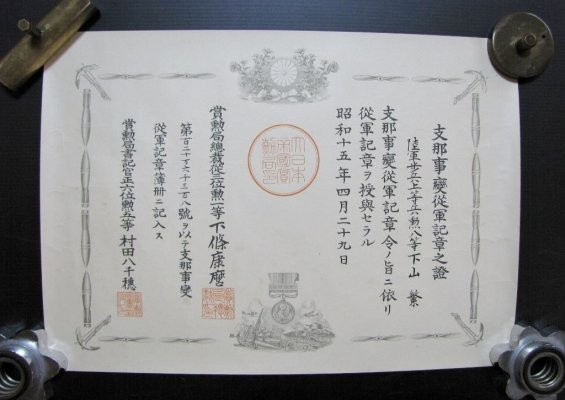 支那事變從軍記章之證
陸軍歩兵上等兵勲八等下山 繁
支那事變從軍記章令ノ旨ニ依リ
從軍記章ヲ授與セラル
昭和十五年四月二十九日
大日本
帝國賞
勲局印
賞勲局總裁從三位勲一等下條康麿
號ヲ以テ支那事變
從軍記章簿册ニ記入ス
賞勲局書記官正六位勲五等村田八千穂